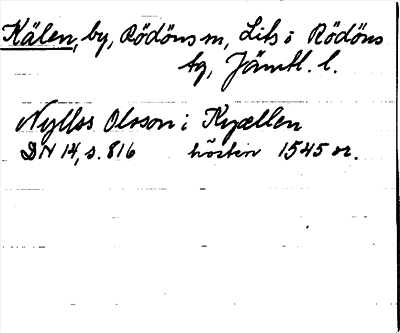 Kälen, by, Rödöns sn, Lits o Rödöns
tg, Jämtl. l.
Nyllss Olsson i Kyællen
DN 14, s. 816 hösten 1545 or.